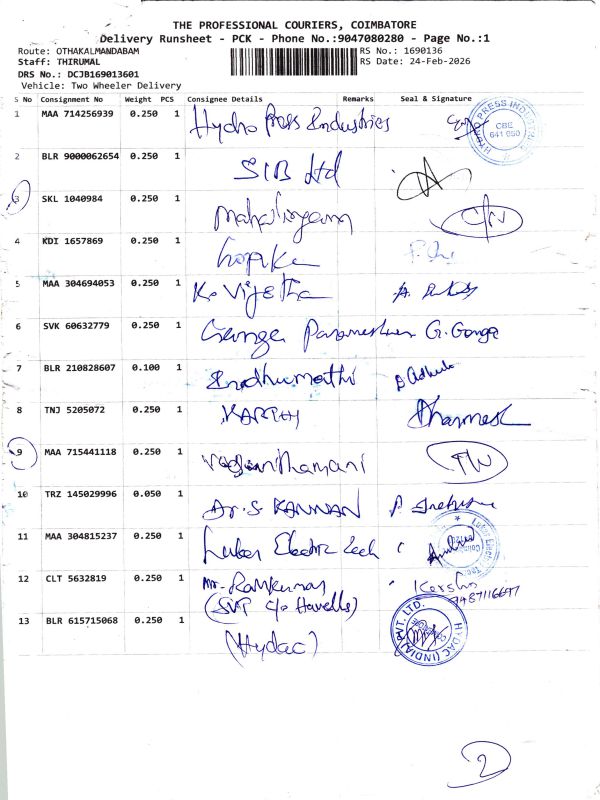 THE PROFESSIONAL COURIERS, COIMBATORE
Delivery Runsheet - PCK - Phone No.:9047080280 - Page No.:1
Route: OTHAKALMANDABAM RS No.: 1690136
Staff: THIRUMAL RS Date: 24-Feb-2026
DRS No.: DCJB169013601
Vehicle: Two Wheeler Delivery
S No Consignment No Weight PCS Consignee Details Remarks Seal & Signature
1 MAA 714256939 0.250 1 Hydro Press Industries HYDRO PRESS INDUSTRIES CBE 641 050
2 BLR 9000062654 0.250 1 SIB Ltd
3 SKL 1040984 0.250 1 Mahalingam
4 KDI 1657869 0.250 1 Gopika
5 MAA 304694053 0.250 1 K. Vijetha
6 SVK 60632779 0.250 1 Ganga Parameshwar G. Ganga
7 BLR 210828607 0.100 1 Indhumathi
8 TNJ 5205072 0.250 1 KARTHI Dharmesh
9 MAA 715441118 0.250 1 TW
10 TRZ 145029996 0.050 1 Dr. S. KANNAN
11 MAA 304815237 0.250 1 Luker Electric Tech
12 CLT 5632819 0.250 1 Mr. Ramkumar
(SVP c/o Havells)
13 BLR 615715068 0.250 1 (Hydac) HYDAC (INDIA) PVT. LTD.
2